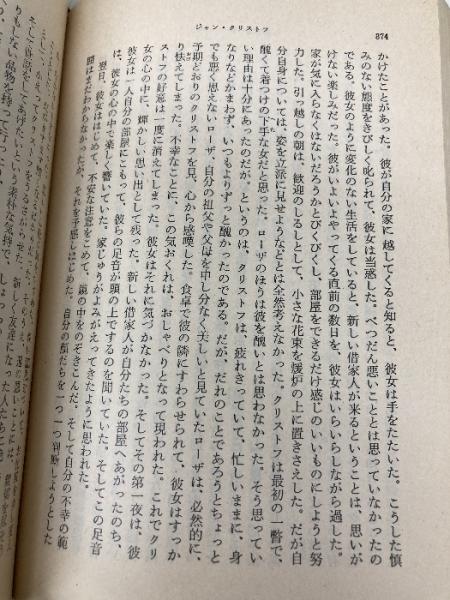 ジャン・クリストフ
374
かけたことがあった。彼が自分の家に越してくると知ると、彼女は手をたたいた。こうした慎
みのない態度をきびしく叱られて、彼女は当惑した。べつだん悪いこととは思っていなかったの
である。彼女のように変化のない生活をしていると、新しい借家人が来るということは、思いが
けない楽しみだった。彼がいよいよやってくる直前の数日を、彼女はいらいらしながら過した。
家が気に入らなくはないだろうかとびくびくし、部屋をできるだけ感じのいいものにしようと努
力した。引っ越しの朝は、歓迎のしるしとして、小さな花束を煖炉の上に置きさえした。だが自
分自身については、姿を立派に見せようなどとは全然考えなかった。クリストフは最初の一瞥で、
醜くて着つけの下手な女だと思った。ローザのほうは彼を醜いとは思わなかった。そう思ってい
い理由は十分にあったのだが。というのは、クリストフは、疲れきっていて、忙しいままに、身
なりなどかまわず、いつもよりずっと醜かったのである。だが、だれのことであろうとちょっと
でも悪く思えないローザ、自分の祖父や父母を申し分なく美しいと見ていたローザは、必然的に、
予期どおりのクリストフを見、心から感嘆した。食卓で彼の隣にすわらせられて、彼女はすっか
り怯えてしまった。不幸なことに、この気おくれは、おしゃべりとなって現われた。これでクリ
ストフの好意は一度に消えてしまった。彼女はそれに気づかなかった。そしてその第一夜は、彼
女の心の中に、輝かしい思い出として残った。新しい借家人が自分たちの部屋へあがったのち、
彼女は一人自分の部屋にじもって、彼らの足音が頭の上でするのを聞いていた。そしてこの足音
は、彼女の心の中で楽しく響いていた。家じゅうがよみがえってきたように思われた。
翌日、彼女ははじめて、不安な注意をこめて、鏡の中をのぞきこんだ。そして自分の不幸の範
囲はまだわからなかったが、それを予感しはじめた。自分の顔だちを一つ一つ判断しようとした